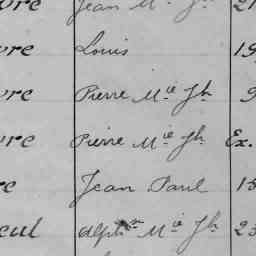 vre Jean Mie Jh 21
vre Louis 19
vre Pierre Mie Jh 9
vre Pierre Mie Jh Ex.
re Jean Paul 15
cul Alph Mie Jh 23